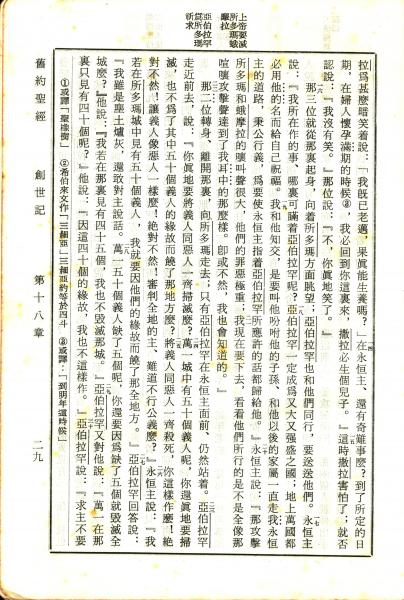 上帝要滅
所多瑪蛾
摩拉
亞伯拉罕
爲所多瑪
祈求
拉爲甚麽暗笑着說：『我既已老邁，果眞能生養嗎？』一四在永恒主、還有奇難事麽？到了所定的日
期，在婦人懷孕滿期的時候③，我必回到你這裏來，撒拉必生個兒子。』一五這時撒拉害怕了；就否
認說：『我沒有笑。』那位說：『不，你眞地笑了。』
一六那三位就從那裏起身，向着所多瑪方面眺望；亞伯拉罕也和他們同行，要送送他們。一七永恒主
說：『我所在作的事，哪裏可瞞着亞伯拉罕呢？一八亞伯拉罕一定成爲又大又强盛之國；地上萬國都
必用他的名而給自己祝福。一九我和他知交，是要叫他吩咐他的子孫、和他以後的家屬一直走我永恒
主的道路，秉公行義，爲要使永恒主指着亞伯拉罕所應許的話都歸給他。』二〇永恒主說：『那攻擊
所多瑪和蛾摩拉的嚷叫聲很大，他們的罪惡極重；二一我現在要下去，看看他們所行的是不是全像那
喧嚷攻擊聲達到了我耳中的那麼樣。卽或不然，我也會知道的。』
二二那二位轉身，離開那裏，向所多瑪走去；只有亞伯拉罕在永恒主面前、仍然站着。二三亞伯拉罕
走近前去，說：『你眞地要將義人同惡人一齊掃滅麽？二四萬一城中有五十個義人呢，你還眞地要掃
滅，也不爲了其中五十個義人的緣故而饒了那地方麽？二五將義人同惡人一齊殺死，你這樣作麽！絶
對不然！讓義人像惡人一樣麽！絶對不然！審判全地的主、難道不行公義麽？』二六永恒主說：『我
若在所多瑪城中見有五十個義人，我就要因他們的緣故而饒了那全地方。』二七亞伯拉罕回答說：
『我雖是塵土爐灰，還敢對主說話。二八萬一五十個義人缺了五個呢，你還要因爲缺了五個就毀滅全
城麽？』他說：『我若在那裏見有四十五個，我也不毀滅那城。』二九亞伯拉罕又對他說：『萬一在那
裏只見有四十個呢？』他說：『因這四十個的緣故，我也不這樣作。』三〇亞伯拉罕說：『求主不要
①或譯『聖橡樹』　②希伯來文作『三細亞』三細亞約等於四斗　③或譯：『到明年這時候』
舊約聖經　創世記　第十八章　二九